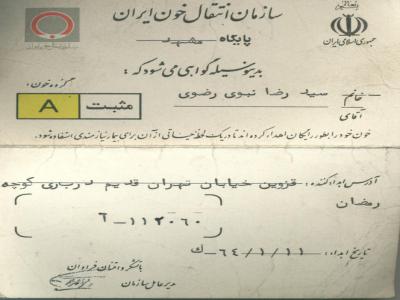 سازمان انتقال خون ایران
پایگاه مشهد
جمهوری اسلامی ایران
بدینوسیله گواهی می شود که:
خانم سید رضا نبوی رضوی
آقای
گروه خون:
مثبت A
خون خود را بطور رایگان اهدا کرده اند تا در یک لحظه حیاتی از آن برای بیمار نیازمندی استفاده شود.
آدرس اهداکننده: قزوین خیابان تهران قدیم درباری کوچه
رمضان
۶-۱۱۲۰۶۰
تاریخ اهداء: ۶۴/۱/۱۱-ک
با تشکر و امتنان فراوان
مدیر عامل سازمان